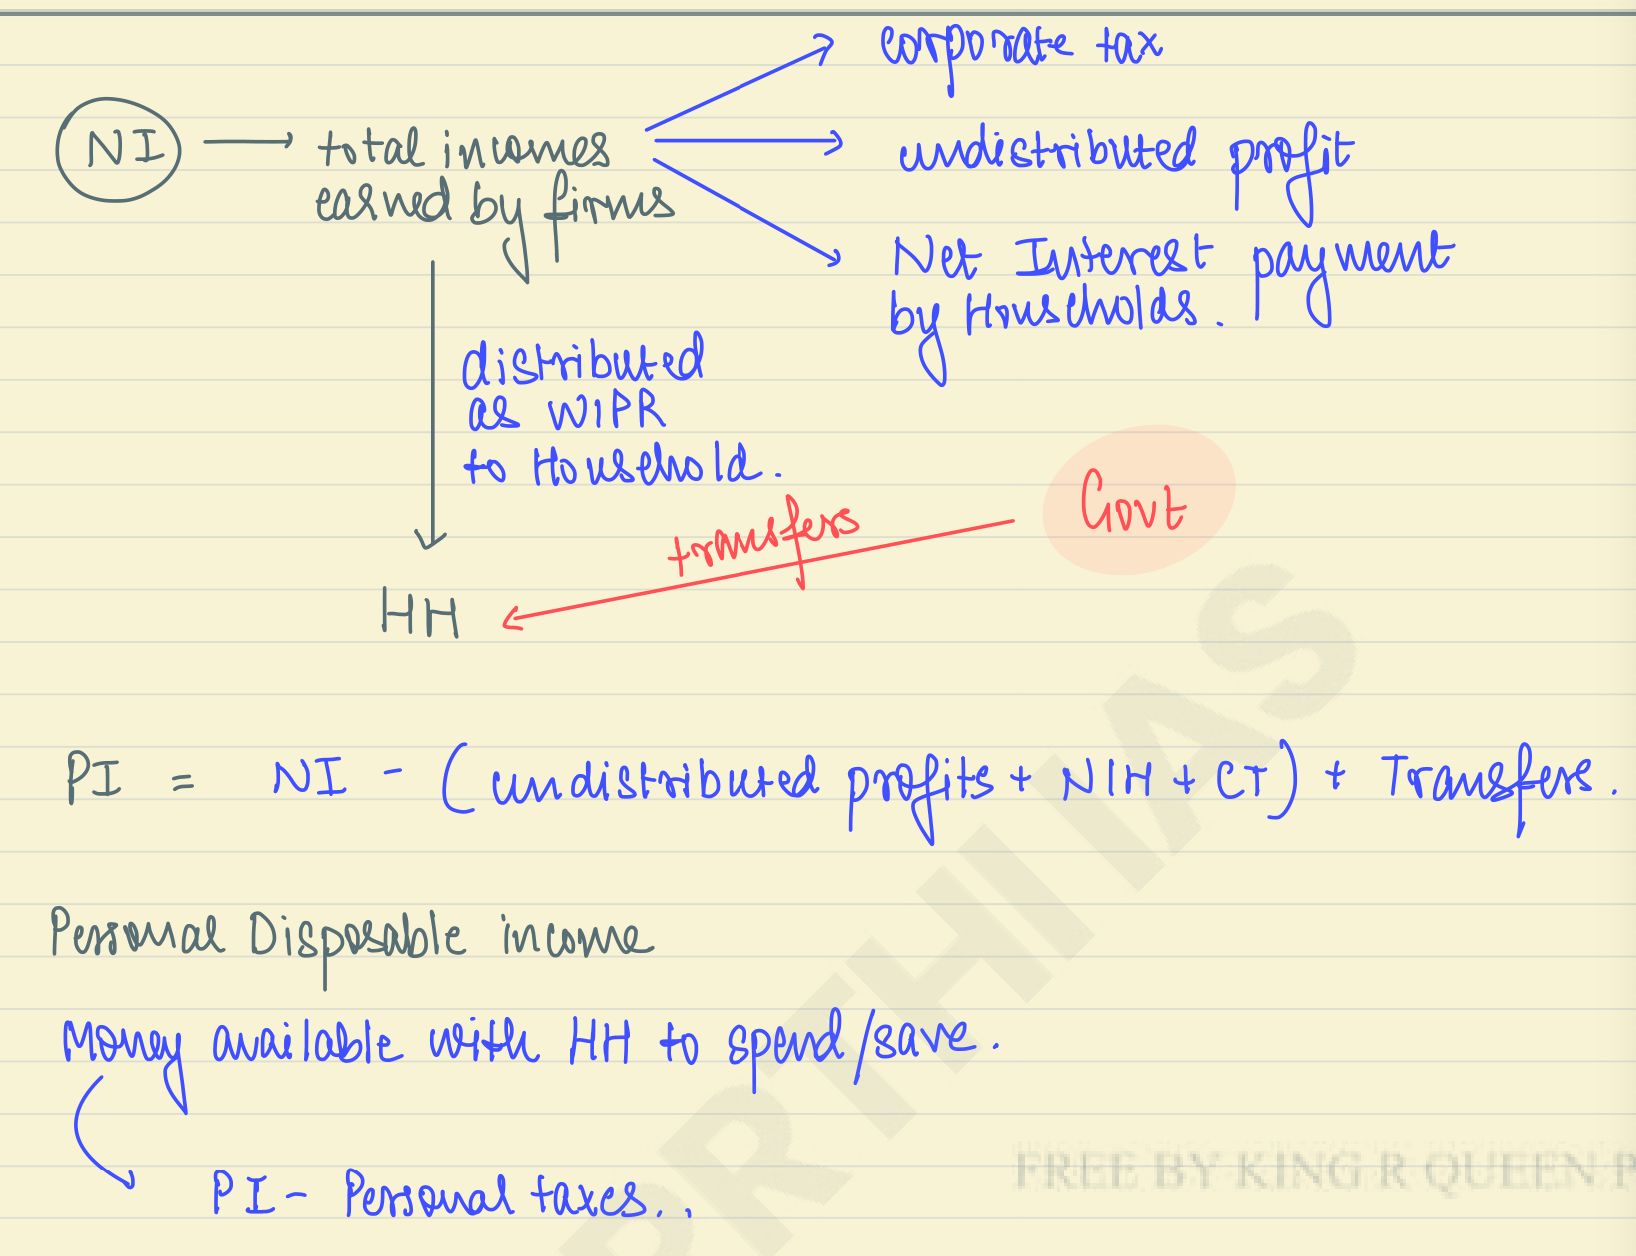 corporate tax
NI → total incomes
earned by firms
undistributed profit
Net Interest payment
by Households.
distributed
as WIPR
to Household.
Govt
transfers
HH
PI = NI - (undistributed profits + NIH + CT) + Transfers.
Personal Disposable income
Money available with HH to spend/save.
PI - Personal taxes..
PRTHI IAS
FREE BY KING R QUEEN P